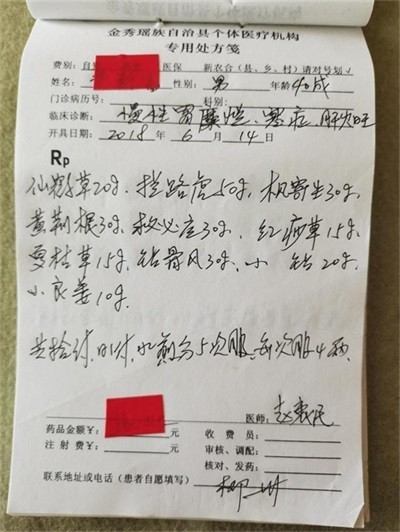 金秀瑶族自治县个体医疗机构
专用处方笺
费别: 自 医保 新农合（县、乡、村）请对号划√
姓名: 性别: 男 年龄 40成
门诊病历号: 科别:
临床诊断: 慢性胃糜烂、寒症、肝火旺
开具日期: 2018年6月14日
Rp
仙鹤草20g、拦路虎50g、枫寄生30g、
黄荆根30g、30g、红 草15g、
夏枯草15g、钻骨风30g、小钻20g、
小良姜10g、
共拾付、日1付、水煎分5次服、每次服4两、
医师:
药品金额¥: 元 收费员:
注射费¥: 元 审核、调配:
核对、发药:
联系地址或电话（患者自愿填写）